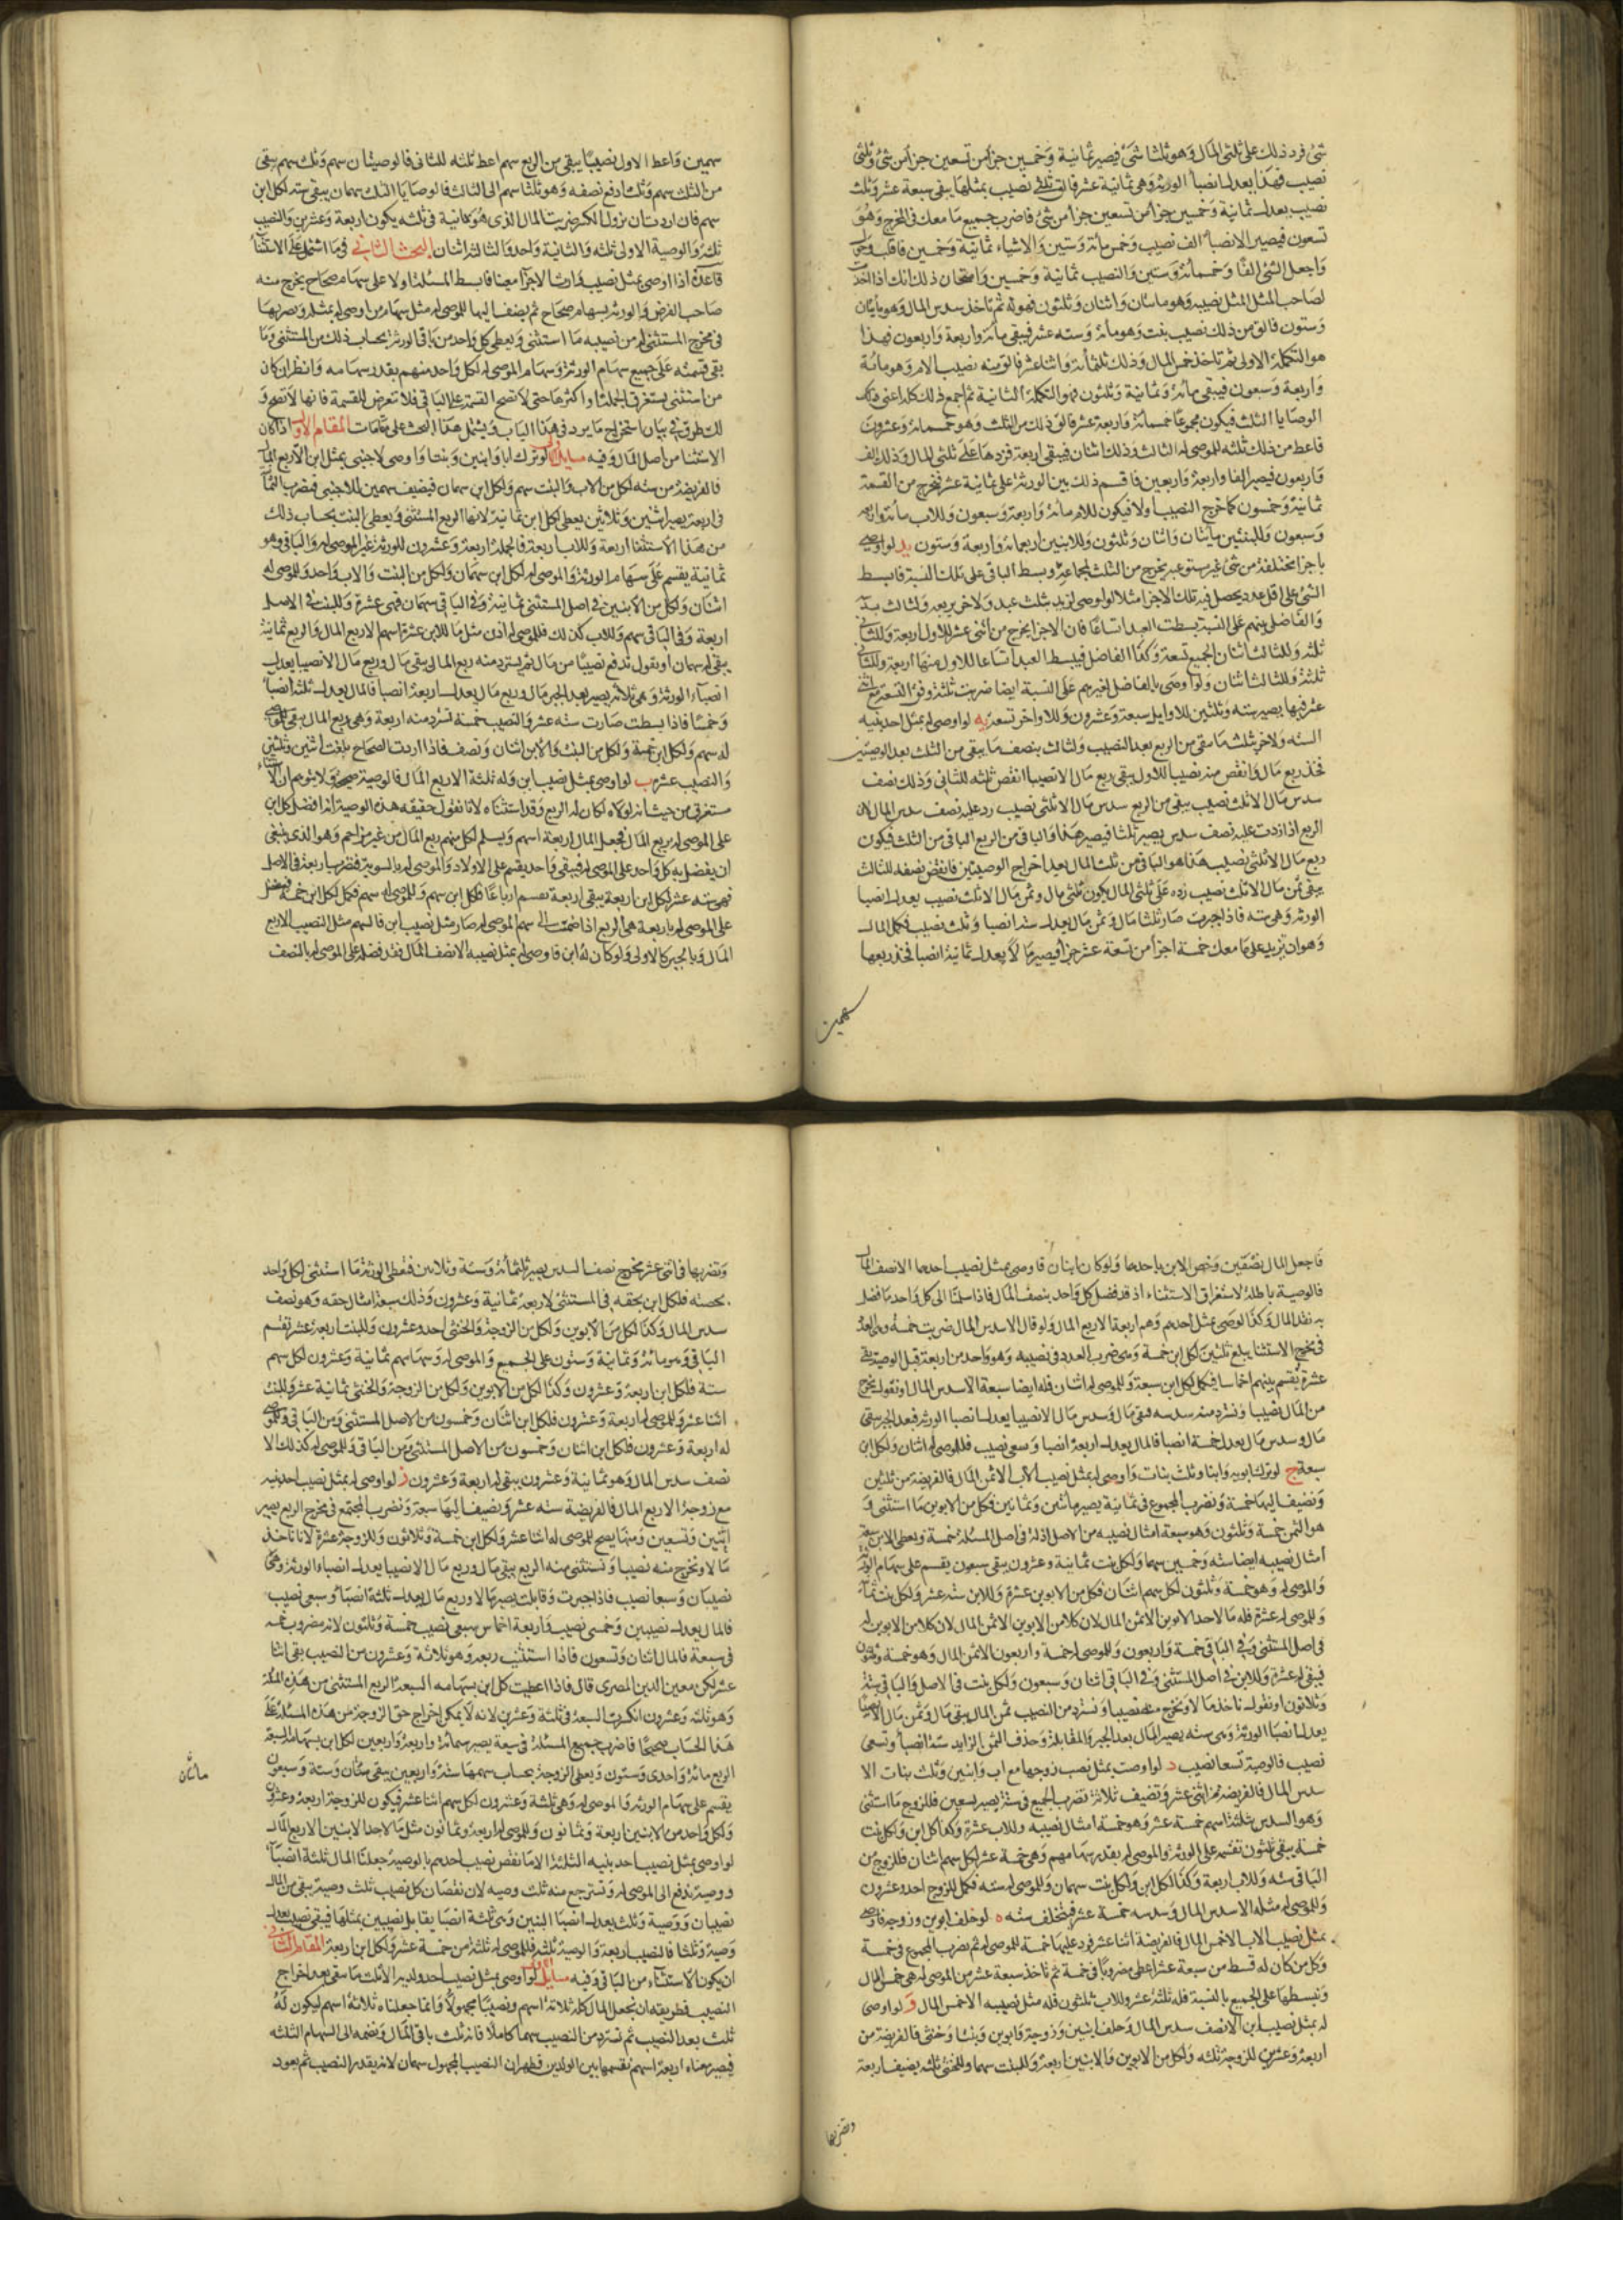 شئ فرد ذلك على ثلثى المال وهو ثلثا شئ فيصير ثمانية وخمسين جزأ من تسعين جزأ من شئ وثلثى
نصيب فهذا يعدل انصبأ الورثة وهى ثمانية عشر فالق ثلثى نصيب بمثلها يبقى سبعة عشر وثلث
نصيب يعدل ثمانية وخمسين جزأ من تسعين جزأ من شئ فاضرب جميع ما معك فى المخرج وهو
تسعون فيصير الانصبأ الف نصيب وخمس مائة وستين والاشياء ثمانية وخمسين فاقلب وحول
واجعل الشئ الفًا وخمسمائة وستين والنصيب ثمانية وخمسين وامتحان ذلك انك اذا اخذت
لصاحب المثل المثل نصيبه وهو مائتان واثنان وثلثون فهو له ثم تاخذ سدس المال وهو مايتان
وستون فالق من ذلك نصيب بنت وهو مائة وستة عشر فيبقى مائة واربعة واربعون فهذا
هو التكملة الاولى ثم تاخذ خمس المال وذلك ثلثمائة واثنا عشر فالق منه نصيب الام وهو مائة
واربعة وسبعون فيبقى مائة وثمانية وثلثون فهو التكملة الثانية ثم اجمع ذلك كله اعنى
الوصايا الثلث فيكون مجموعًا خمسمائة واربعة عشر فالق ذلك من الثلث وهو خمسمائة وعشرون
فاعط من ذلك ثلثه للموصى له الثالث وذلك اثنان فيبقى اربعة فزدها على ثلثى المال وذلك الف
واربعون فيصير الفا واربعة واربعين فاقسم ذلك بين الورثة على ثمانية عشر فيخرج من القسمة
ثمانية وخمسون كما خرج النصيب اولا فيكون للام مائة واربعة وسبعون وللاب مائة واربعة
وسبعون وللبنتين مايتان واثنان وثلثون وللابنين اربعمائة واربعة وستون يد لو اوصى
باجزا مختلفة من شئ غير مستوعبة يخرج من الثلث لجماعة وبسط الباقى على تلك النسبة فابسط
الشئ على اقل عدد يحصل فيه تلك الاجزا مثلا لو اوصى لزيد بثلث عبد ولاخر بربعه ولثالث
والفاضل بينهم على النسبة بسطت العبد اتساعًا فان الاجزا يخرج من اثنى عشر للاول اربعة وللثانى
ثلثة وللثالث اثنان الجميع تسعة وكذا الفاضل فيبسط العبد اتساعا للاول منها اربعة وللثانى
ثلثة وللثالث اثنان ولو اوصى بالفاضل لغيرهم على النسبة ايضا ضربت ثلثة وفق التسعة مع اثنى
عشر فيها يصير ستة وثلثين للاوايل سبعة وعشرون وللاواخر تسعة يه لو اوصى له بمثل احد بنيه
الستة ولاخر بثلث ما يبقى من الربع بعد النصيب ولثالث بنصف ما يبقى من الثلث بعد الوصيتين
فخذ ربع مال وانقص منه نصيبا للاول يبقى ربع مال الا نصيبا انقص ثلثه للثانى وذلك نصف
سدس مال الا ثلث نصيب يبقى من الربع سدس مال الا ثلثى نصيب رد عليه نصف سدس المال لان
الربع اذا زدت عليه نصف سدس يصير ثلثا فيصير هذا والباقى من الربع الباقى من الثلث فيكون
ربع مال الا ثلثى نصيب هذا هو الباقى من ثلث المال بعد اخراج الوصيتين فانقص نصفه للثالث
يبقى ثمن مال الا ثلث نصيب زده على ثلثى المال يكون ثلثى مال وثمن مال الا ثلث نصيب يعدل انصبا
الورثة وهى ستة فاذا جبرت صار ثلثا مال وثمن مال يعدل ستة انصبا وثلث نصيب فكمل المال
وهو ان تزيد على ما معك خمسة اجزأ من تسعة عشر جزأ فيصير مالًا يعدل ثمانية انصبا فخذ ربعها
سهمين
سهمين واعط الاول نصيبًا يبقى من الربع سهم اعط ثلثه للثانى فالوصيتان سهم وثلث سهم يبقى
من الثلث سهم وثلث ادفع نصفه وهو ثلثا سهم الى الثالث فالوصايا الثلث سهمان يبقى ستة لكل ابن
سهم فان اردت ان يزول الكسر ضربت المال الذى هو ثمانية فى ثلثة يكون اربعة وعشرين والنصيب
ثلثة والوصية الاولى ثلثة والثانية واحد والثالثة اثنان البحث الثانى فيما اشتمل على الاستثنأ
قاعدة اذا اوصى بمثل نصيب وارث الا جزأ معينا فابسط المسئلة اولا على سهام صحاح يخرج منه
صاحب الفرض والورثة بسهام صحاح ثم يضف اليها للموصى له مثل سهام من اوصى له بمثله وتضربها
فى مخرج المستثنى له من نصيبه ما استثنى ويعطى كل واحد من باقى الورثة بحساب ذلك من المستثنى وما
بقى قسمته على جميع سهام الورثة وسهام الموصى له لكل واحد منهم بقدر سهامه وانظر ان كان
من استثنى يستغرق الجملة او اكثرها حتى لا تصح القسمة على الباقى فلا تعرض للقسمة فانها لا تصح و
لك طرق فى بيان استخراج ما يرد فى هذا الباب ويشمل هذا البحث على مقامات المقام الاول اذا كان
الاستثنا من اصل المال وفيه مسايل ا لو ترك ابا وابنين وبنتا واوصى لاجنبى بمثل ابن الا ربع المال
فالفريضة من ستة لكل من الاب والبنت سهم ولكل ابن سهمان فيضيف سهمين للاجنبى فيضرب الثمانية
فى اربعة يصير اثنين وثلاثين يعطى لكل ابن ثمانية لانها الربع المستثنى ويعطى البنت بحساب ذلك
من هذا الاستثنا اربعة وللاب اربعة فالجملة اربعة وعشرون للورثة غير الموصى له والباقى وهو
ثمانية يقسم على سهام الورثة والموصى له لكل ابن سهمان ولكل من البنت والاب واحد وللموصى له
اثنان ولكل من الابنين فى اصل المستثنى ثمانية وفى الباقى سهمان فهى عشرة وللبنت فى الاصل
اربعة وفى الباقى سهم وللاب كذلك فللموصى له اذن مثل ما للابن عشرة اسهم الا ربع المال والربع ثمانية
يبقى له سهمان او نقول ندفع نصيبًا من مال ثم يسترد منه ربع المال يبقى مال وربع مال الا نصيبا يعدل
انصبآء الورثة وهى ثلاثة يصير بعد الجبر مال وربع مال يعدل اربعة انصبا فالمال يعدل ثلثة انصبأ
وخمسًا فاذا بسطت صارت ستة عشر والنصيب خمسة تسترد منه اربعة وهى ربع المال يبقى للموصى
له سهم ولكل ابن خمسة ولكل من البنت والاب اثنان ونصف فاذا اردت الصحاح بلغت اثنين وثلثين
والنصيب عشرة ب لو اوصى بمثل نصيب ابن وله ثلثة الا ربع المال فالوصية صحيحة ولا يتوهم ان الاستثناء
مستغرق من حيث انه لولاه لكان له الربع وقد استثناه لانا نقول حقيقة هذه الوصية انه افضل كل ابن
على الموصى له بربع المال فيجعل المال اربعة اسهم ويسلم لكل منهم ربع المال من غير مزاحم وهو الذى ينبغى
ان يفضل به كل واحد على الموصى له فيبقى واحد يقسم على الاولاد والموصى له بالسوية فتضرب اربعة فى الاصل
فهى ستة عشر لكل ابن اربعة يبقى اربعة تقسم ارباعًا فلكل ابن سهم وللموصى له سهم فكمل لكل ابن خمسة فيفضل
على الموصى له باربعة هى الربع اذا ضمت الى سهم الموصى له صار مثل نصيب ابن فالسهم مثل النصيب الا ربع
المال وبالجبر كالاولى ولو كان له ابن فاوصى له بمثل نصيبه الا نصف المال فقد فضله على الموصى له بالنصف
فاجعل المال نصفين وخص الابن باحدهما ولو كان ابنان فاوصى بمثل نصيب احدهما الا نصف المال
فالوصية باطلة لاستغراق الاستثناء اذ قد فضل كل واحد بنصف المال فاذا سلمنا الى كل واحد ما فضل
به نفد المال وكذا لو وصى بمثل احدهم وهم اربعة الا ربع المال ولو قال الا سدس المال ضربت خمسة وهى العدد
فى مخرج الاستثنا يبلغ ثلثين لكل ابن خمسة وهى ضرب العدد فى نصيبه وهو واحد من اربعة قبل الوصية يبقى
عشرة تقسم بينهم اخماسا فيكمل لكل ابن سبعة وللموصى له اثنان فله ايضا سبعة الا سدس المال او نقول يخرج
من المال نصيبا ونسترد منه سدسه فبقى مال وسدس مال الا نصيبا يعدل انصبا الورثة فبعد الجبر يبقى
مال وسدس مال يعدل خمسة انصبا فالمال يعدل اربعة انصبا وسبعى نصيب فللموصى له اثنان ولكل ابن
سبعة ج لو ترك ابويه وابنا وثلث بنات واوصى له بمثل نصيب الاب الا ثمن المال فالفريضة من ثلثين
ونضيف اليها خمسة ونضرب المجموع فى ثمانية يصير مائتين وثمانين فلكل من الابوين ما استثنى و
هو الثمن خمسة وثلثون وهو سبعة امثال نصيبه من الاصل اذ له فى اصل المسئلة خمسة ويعطى الابن سبعة
امثال نصيبه ايضا ستة وخمسين سهما ولكل بنت ثمانية وعشرون يبقى سبعون يقسم على سهام الورثة
والموصى له وهو خمسة وثلثون لكل سهم اثنان فلكل من الابوين عشرة وللابن ستة عشر ولكل بنت ثمانية
وللموصى له عشرة فله ما لاحد الابوين الا ثمن المال لان كلا من الابوين الا ثمن المال لان كلا من الابوين له
فى اصل المستثنى وفى الباقى خمسة واربعون وللموصى له خمسة واربعون الا ثمن المال وهو خمسة وثلثون
فيبقى له عشرة وللابن فى اصل المستثنى وفى الباقى اثنان وسبعون ولكل بنت فى الاصل والباقى ستة
وثلاثون او نقول ناخذ مالا ونخرج منه نصيبا ونسترد من النصيب ثمن المال يبقى مال وثمن مال الا نصيبا
يعدل انصبا الورثة وهى ستة يصير المال بعد الجبر والمقابلة وحذف الثمن الزايد ستة انصبأ وتسعى
نصيب فالوصية تسعا نصيب د لو اوصت بمثل نصيب زوجها مع اب وابنين وثلث بنات الا
سدس المال فالفريضة من اثنى عشر ونضيف ثلاثة نضرب الجميع فى ستة يصير تسعين فللزوج ما استثنى
وهو السدس بثلثة اسهم خمسة عشر وهو خمسة امثال نصيبه وللاب عشرة وكذا لكل ابن ولكل بنت
خمسة يبقى ثلثون تقسم على الورثة والموصى له بقدر سهامهم وهى خمسة عشر لكل سهم اثنان فللزوج من
الباقى ستة وللاب اربعة وكذا لكل ابن ولكل بنت سهمان وللموصى له ستة فكمل للزوج احد وعشرون
وللموصى له مثله الا سدس المال وسدسه خمسة عشر فيتخلف ستة ه لو خلف ابوين وزوجة فاوصى
بمثل نصيب الاب الا خمس المال فالفريضة اثنا عشر فزد عليها خمسة للموصى له ثم نضرب المجموع فى خمسة
وكل من كان له قسط من سبعة عشر اعطى مضروبًا فى خمسة ثم تاخذ سبعة عشر من الموصى له هى خمس المال
ونبسطها على الجميع بالنسبة فله ثلثة عشر وللاب ثلثون فله مثل نصيبه الا خمس المال و لو اوصى
له بمثل نصيب ابن الا نصف سدس المال وخلف ابنين وزوجة وابوين وبنتا وخنثى فالفريضة من
اربعة وعشرين للزوجة ثلثة ولكل من الابوين والابنين اربعة وللبنت سهما وللخنثى ثلثة يضيف اربعة
وتضربها
وتضربها فى اثنى عشر مخرج نصف السدس يصير ثلثمائة وستة وثلاثين فنعطى الورثة ما استثنى لكل واحد
بحصته فلكل ابن بحقه فى المستثنى لاربعة ثمانية وعشرون وذلك سبعة امثال حقه وهو نصف
سدس المال وكذا لكل من الابوين ولكل من الزوجة والخنثى احد وعشرون وللبنت اربعة عشر تقسم
الباقى وهو مائة وثمانية وستون على الجميع والموصى له وسهامهم ثمانية وعشرون لكل سهم
ستة فلكل ابن اربعة وعشرون وكذا لكل من الابوين ولكل من الزوجة والخنثى ثمانية عشر وللبنت
اثنا عشر وللموصى له اربعة وعشرون فلكل ابن اثنان وخمسون من الاصل المستثنى ومن الباقى وللموصى
له اربعة وعشرون فلكل ابن اثنان وخمسون من الاصل المستثنى ومن الباقى وللموصى له كذلك الا
نصف سدس المال وهو ثمانية وعشرون يبقى له اربعة وعشرون ز لو اوصى له بمثل نصيب احد بنيه
مع زوجة الا ربع المال فالفريضة ستة عشر ونضيف اليها سبعة ونضرب المجتمع فى مخرج الربع يصير
اثنين وتسعين ومنها يصح للموصى له اثنا عشر ولكل ابن خمسة وثلاثون وللزوجة عشرة لانا ناخذ
مالا ونخرج منه نصيبا ونستثنى منه الربع يبقى مال وربع مال الا نصيبا يعدل انصباء الورثة وهى
نصيبان وسبعا نصيب فاذا جبرت وقابلت يصير مالا وربع مال يعدل ثلثة انصبأ وسبعى نصيب
فالمال يعدل نصيبين وخمسى نصيب واربعة اخماس سبعى نصيب خمسة وثلثون لانه مضروب خمسة
فى سبعة فالمال اثنان وتسعون فاذا استثنيت ربعه وهو ثلاثة وعشرون من النصيب بقى اثنا
عشر لكن معين الدين المصرى قال فاذا اعطيت كل ابن بسهامه السبعة الربع المستثنى من هذه المسئلة
وهو ثلثة وعشرون انكسرت السبعة فى ثلثة وعشرين لانه لا يمكن اخراج حق الزوجة من هذه المسئلة على
هذا الحساب صحيحًا فاضرب جميع المسئلة فى سبعة يصير ستمائة واربعة واربعين لكل ابن بسهامه السبعة
الربع مائة واحدى وستون ويعطى الزوجة بحساب سهمها ستة واربعين يبقى مئتان وستة وسبعون
مائتان
يقسم على سهام الورثة والموصى له وهى ثلثة وعشرون لكل سهم اثنا عشر فيكون للزوجة اربعة وعشرون
ولكل واحد من الابنين اربعة وثمانون وللموصى له اربعة وثمانون مثل ما لاحد الابنين الا ربع المال
لو اوصى بمثل نصيب احد بنيه الثلثة الا ما نقص نصيب احدهم بالوصية جعلنا المال ثلثة انصبأ
ووصية ندفع الى الموصى له ونسترجع منه ثلث وصية لان نقصان كل نصيب ثلث وصية يبقى من المال
نصيبان ووصية وثلث يعدل انصبا البنين وهى ثلثة انصبا يقابل نصيبين بمثلها فيبقى نصيب يعدل
وصية وثلثا فالنصيب اربعة والوصية ثلثة فللموصى له ثلثة من خمسة عشر ولكل ابن اربعة المقام الثانى
ان يكون الاستثناء من الباقى وفيه مسايل ا لو اوصى بمثل نصيب احد ولديه الا ثلث ما يبقى بعد اخراج
النصيب فطريقه ان نجعل المال كله ثلاثة اسهم ونصيبًا مجهولًا وانما جعلناه ثلاثة اسهم ليكون له
ثلث بعد النصيب ثم تسترد من النصيب سهما كاملا فانه ثلث باقى المال ونضمه الى السهام الثلثة
فيصير معناه اربعة اسهم نقسمها بين الولدين فظهر ان النصيب المجهول سهمان لانه يقدر النصيب ثم يعود